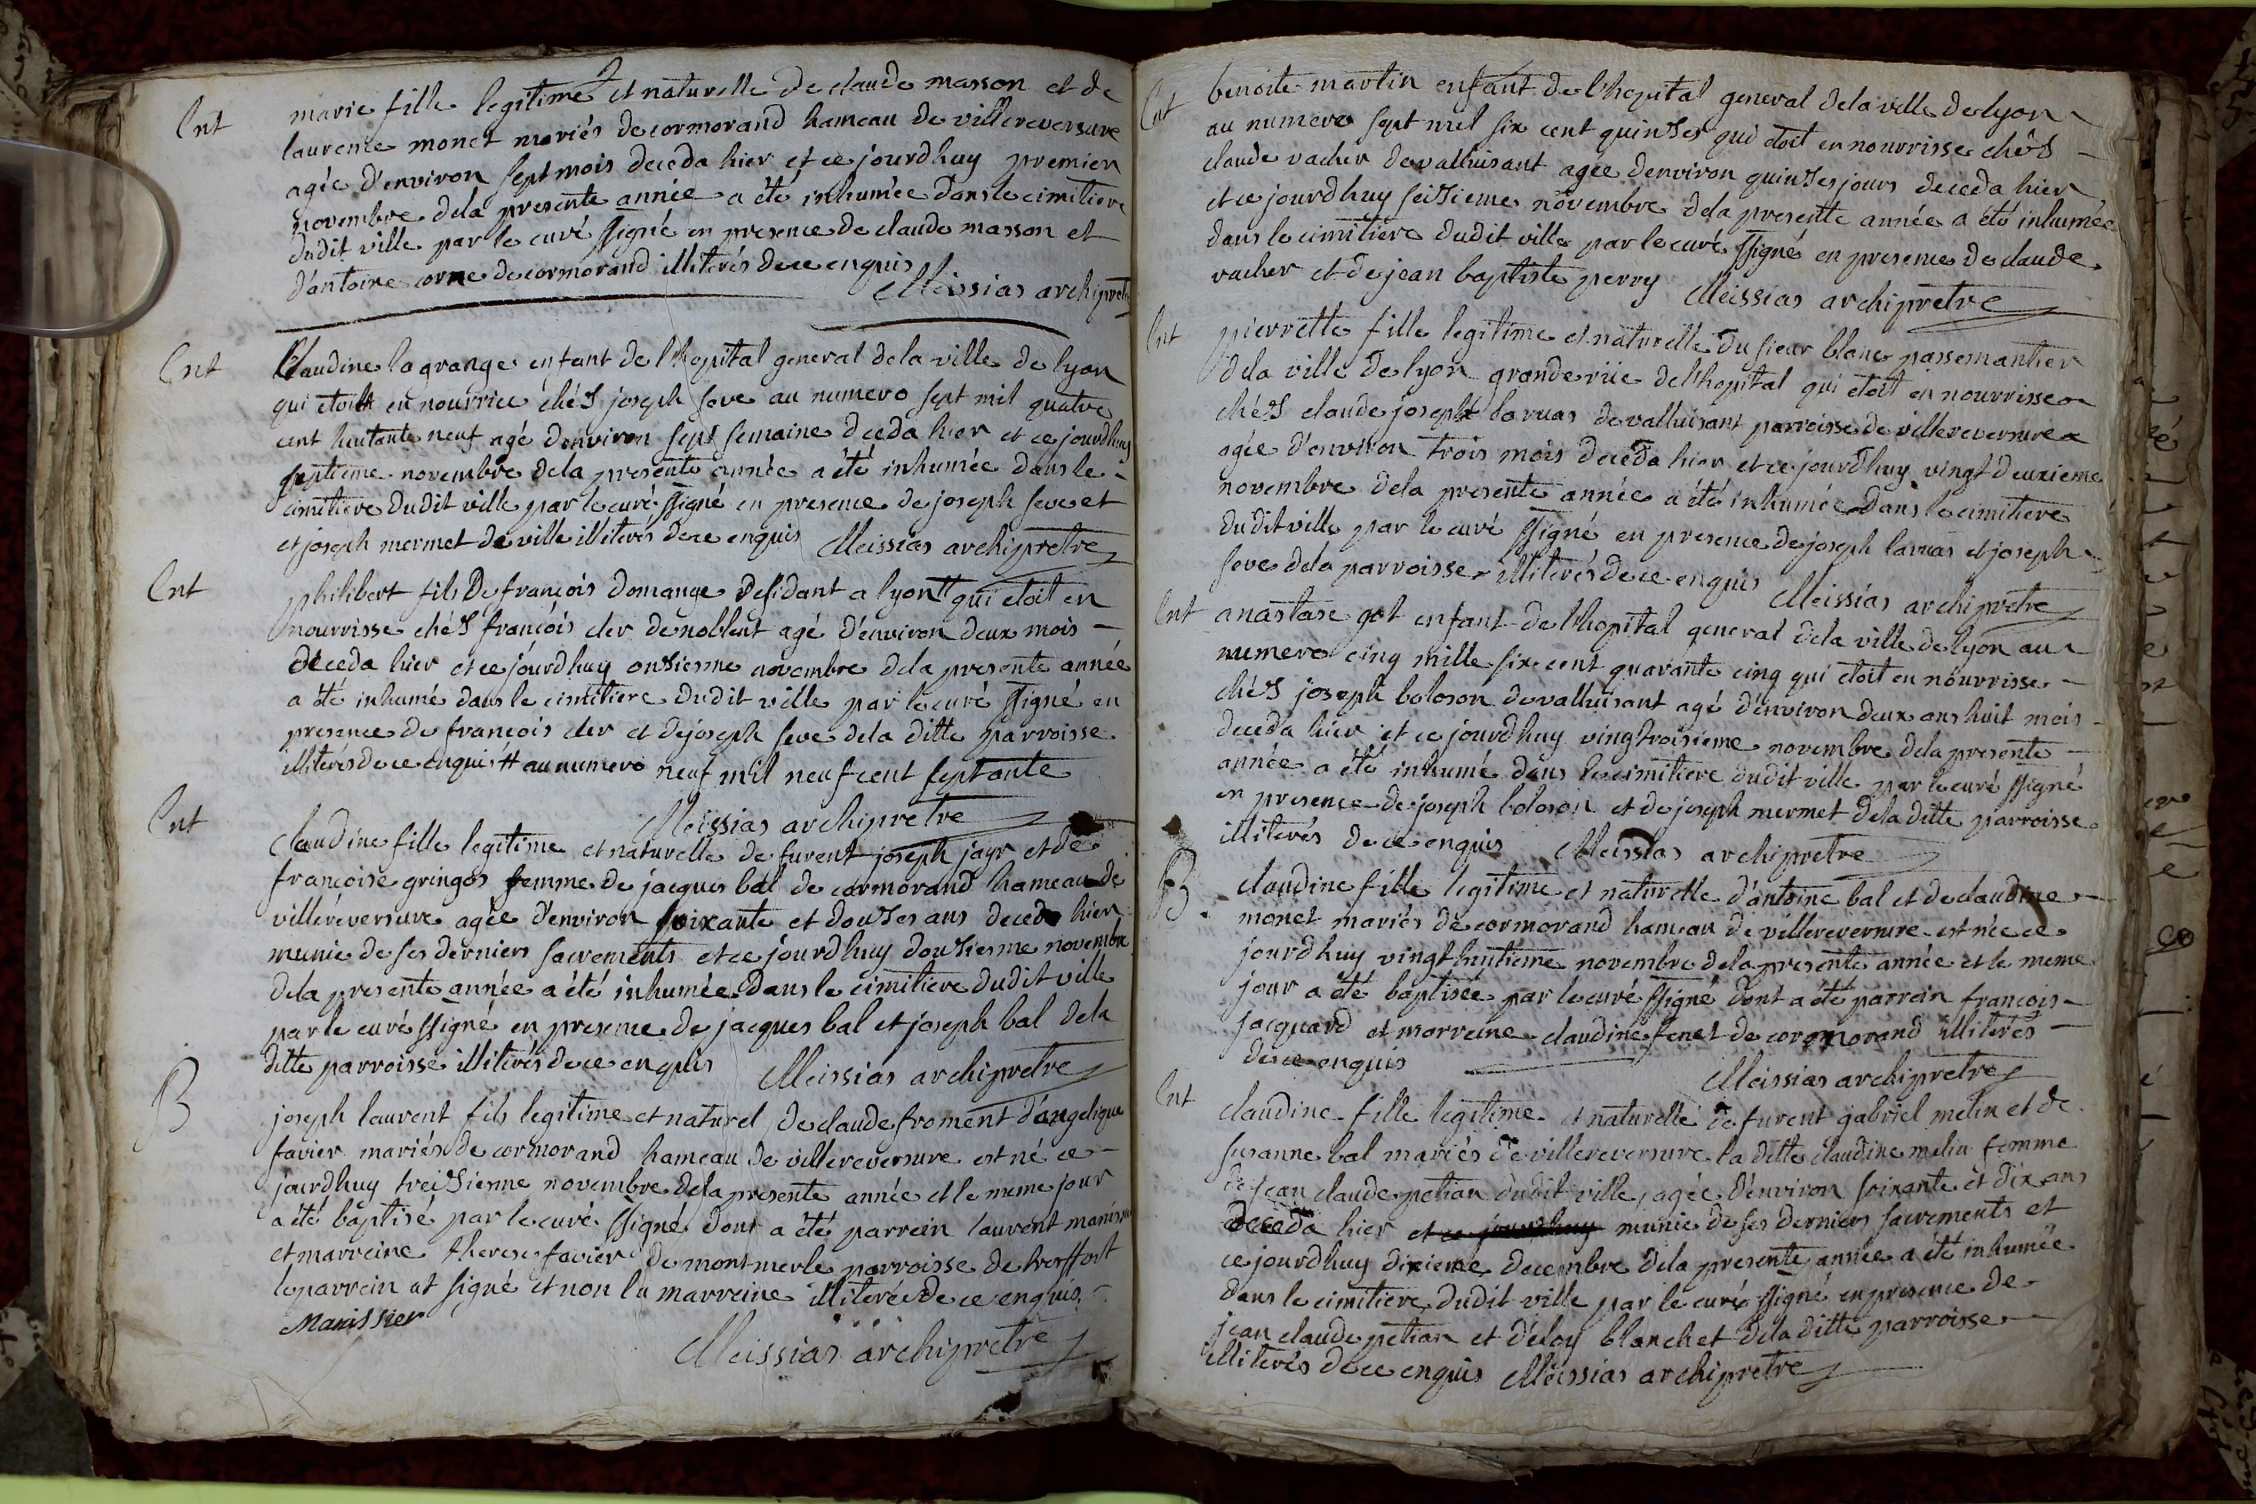 Ent
marie fille legitime et naturelle de claude masson et de
laurence monet mariés de cormorand hameau de villereversure
agée d'environ sept mois deceda hier et ce jourd huy premier
novembre de la presente année a été inhumée dans le cimitiere
dudit ville par le curé ssigné en presence de claude masson et
d'antoine corne de cormorand illiterés de ce enquis
Meissias archipretre
Ent
Claudine la grange enfant de l'hopital general de la ville de lyon
qui etoit en nourrice chés joseph seve au numero sept mil quatre
cent huitante neuf agé d'environ sept semaine deceda hier et ce jourd huy
septieme novembre de la presente année a été inhumée dans le
cimitiere dudit ville par le curé ssigné en presence de joseph seve et
et joseph mermet de ville illiterés de ce enquis Meissias archipretre
Ent
philibert fils de françois domange residant a lyon # qui etoit en
nourrisse chés françois cler de noblent agé d'environ deux mois
deceda hier et ce jourd huy onsiesme novembre de la presente année
a été inhumé dans le cimitiere dudit ville par le curé ssigné en
presence de françois cler et de joseph seve de la ditte parroisse
illiterés de ce enquis # au numero neuf mil neuf cent septante
Meissias archipretre
Ent
claudine fille legitime et naturelle de furent joseph jayr et de
françoise gringos femme de jacques bal de cormorand hameau de
villereversure agée d'environ soixante et douses ans deceda hier
munie de ses derniers sacrements et ce jourd huy dousiesme novembre
de la presente année a été inhumée dans le cimitiere dudit ville
par le curé ssigné en presence de jacques bal et joseph bal de la
ditte parroisse illiterés de ce enquis Meissias archipretre
B
joseph laurent fils legitime et naturel de claude froment d'angelique
favier mariés de cormorand hameau de villereversure est né ce
jourd huy treisienne novembre de la presente année et le meme jour
a été baptisé par le curé ssigné dont a été parrein laurent manissier
et marreine therese favier de montmerle parroisse de treffort
le parrein at signé et non la marreine illiterée de ce enquis
Manissier
Meissias archipretre
Ent
benoite martin enfant de l'hopital general de la ville de lyon
au numero sept mil six cent quinses qui etoit en nourrisse chés
claude vacher de valluisant agée d'environ quinses jours deceda hier
et ce jourd huy seisieme novembre de la presente année a été inhumée
dans le cimitiere dudit ville par le curé ssigné en presence de claude
vacher et de jean baptiste perry Meissias archipretre
Ent
pierrette fille legitime et naturelle du sieur blanc passemantier
de la ville de lyon grande rüe de l'hopital qui etoit en nourrisse
chés claude joseph laruas de valluisant parroisse de villereversure
agée d'environ trois mois deceda hier et ce jourd huy vingt deuxieme
novembre de la presente année a été inhumée dans le cimitiere
dudit ville par le curé ssigné en presence de joseph laruas et joseph
seve de la parroisse illiterés de ce enquis Meissias archipretre
Ent
anastase got enfant de l'hopital general de la ville de lyon au
numero cinq mille six cent quarante cinq qui etoit en nourrisse
chés joseph boloson de valluisant agé d'environ deux ans huit mois
deceda hier et ce jourd huy vingtroisieme novembre de la presente
année a été inhumé dans le cimitiere dudit ville par le curé ssigné
en presence de joseph boloson et de joseph mermet de la ditte parroisse
illiterés de ce enquis Meissias archipretre
B.
claudine fille legitime et naturelle d'antoine bal et de claudine
monet mariés de cormorand hameau de villereversure est née ce
jourd huy vingt huitieme novembre de la presente année et le meme
jour a été baptisée par le curé ssigné dont a été parrein françois
jacquard et marreine claudine fenet de cormorand illiterés
de ce enquis
Meissias archipretre
Ent
claudine fille legitime et naturelle de furent gabriel melin et de
susanne bal mariés de villereversure la ditte claudine melin femme
de jean claude petian dudit ville, agée d'environ soixante et dix ans
deceda hier et ce jourd huy munie de ses derniers sacrements et
ce jourd huy dixieme decembre de la presente année a été inhumée
dans le cimitiere dudit ville par le curé ssigné en presence de
jean claude petian et d'eloy blanchet de la ditte parroisse
illiterés de ce enquis Meissias archipretre